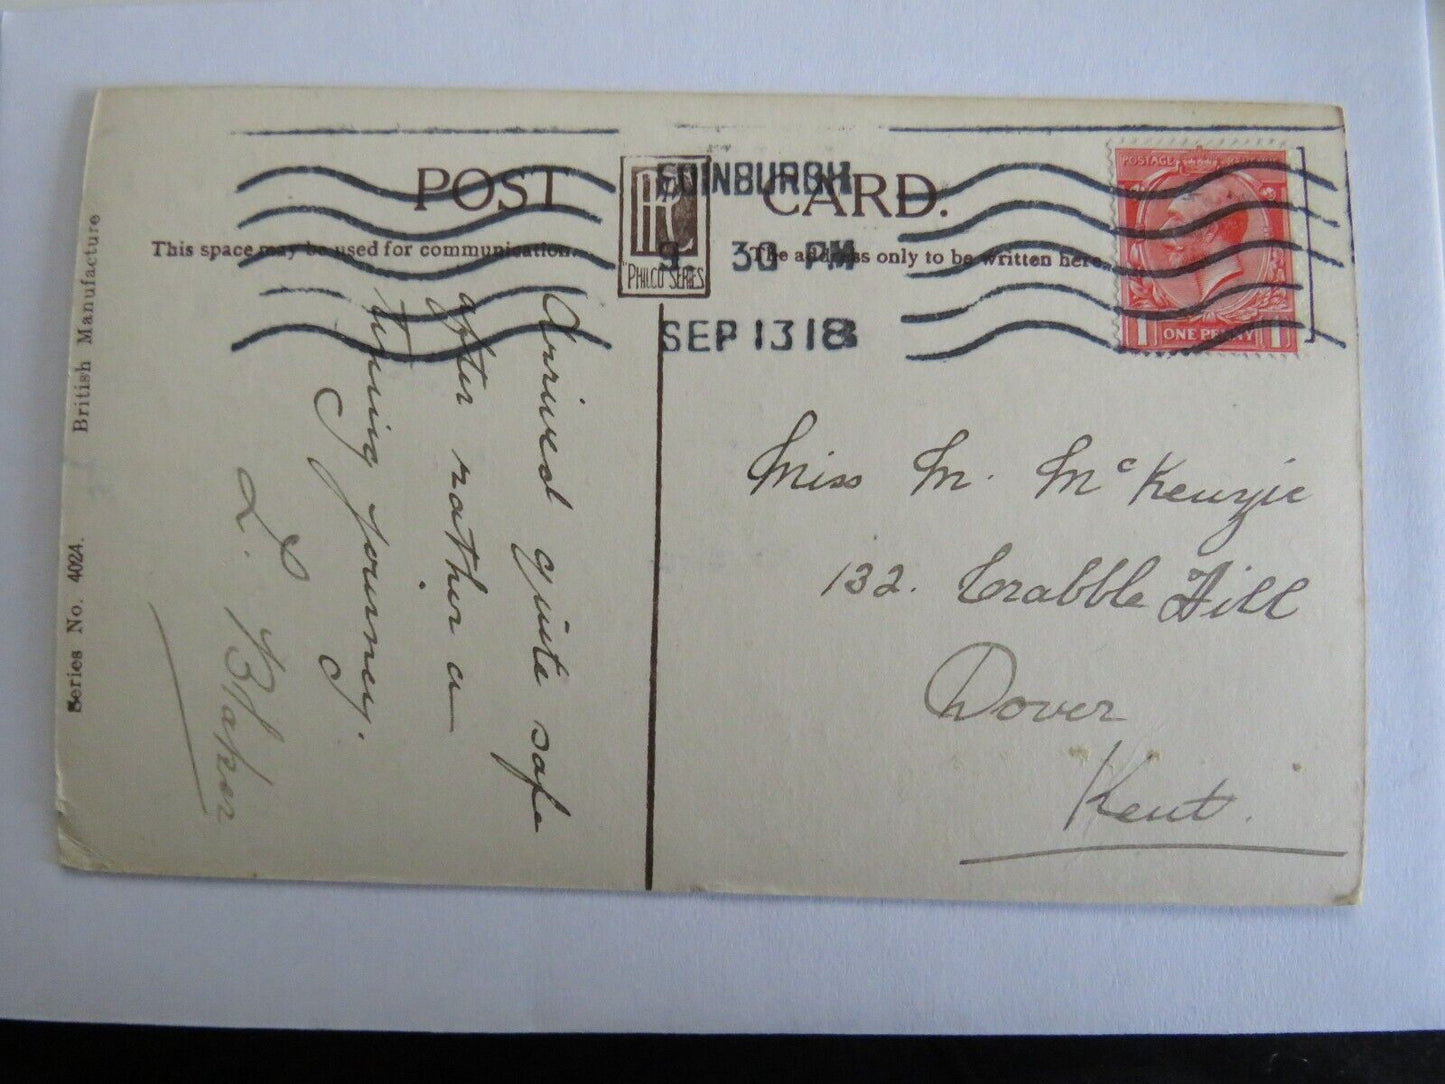 POST CARD.
This space may be used for communication.
The address only to be written here.
PHILCO SERIES
EDINBURGH
9 30 PM
SEP 13 18
POSTAGE
1 ONE PENNY 1
Series No. 4024.
British Manufacture
Arrived quite safe
after rather a
tiring journey.
L.
Miss M. McKenzie
132. Crabble Hill
Dover
Kent.